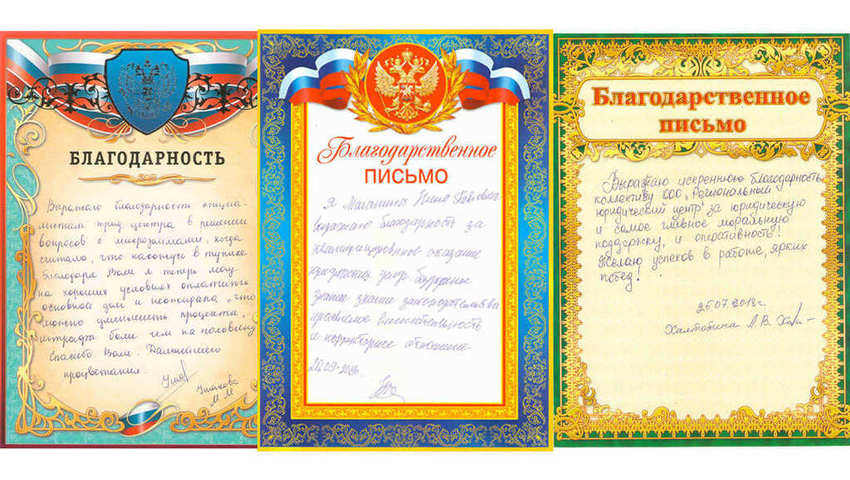 БЛАГОДАРНОСТЬ
Выражаю благодарность
центра в решении
вопросов с микрозаймами, когда
считала, что нахожусь в тупике
благодаря Вам я теперь могу
на хороших условиях оплатить
основной долг и неожидала, что
можно уменьшить проценты,
штрафы более чем на половину
Спасибо Вам. Дальнейшего
процветания.
М.М
Благодарственное
ПИСЬМО
Я
выражаю благодарность за
квалифицированное оказание
юридических
знание законодательства
проявленную внимательность
и корректное отношение
Благодарственное
письмо
Выражаю искреннюю благодарность
коллективу ООО „Региональный
юридический центр" за юридическую
и самое главное моральную
поддержку, и оперативность!
Желаю успехов в работе, ярких
побед!
25.07.2018г
Л.В.